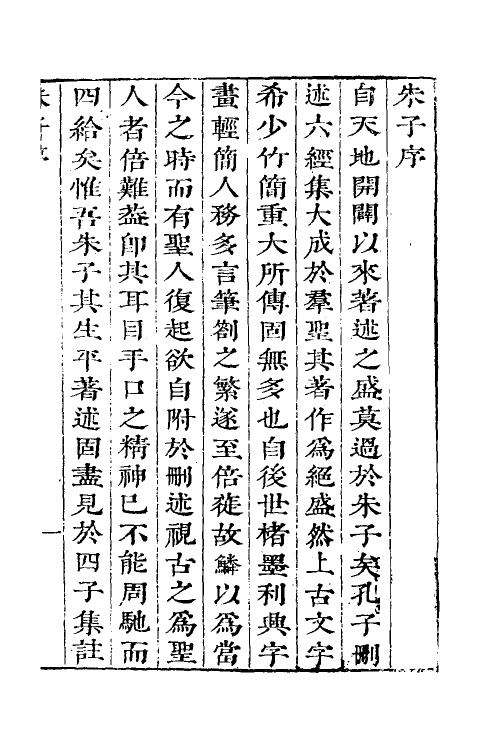 朱子序
自天地開闢以來著述之盛莫過於朱子矣孔子刪
述六經集大成於羣聖其著作爲絕盛然上古文字
希少竹簡重大所傳固無多也自後世楮墨利典字
畫輕簡人務多言筆劄之繁遂至倍蓰故鱗以爲當
今之時而有聖人復起欲自附於刪述視古之爲聖
人者倍難葢卽其耳目手口之精神已不能周馳而
四給矣惟吾朱子其生平著述固盡見於四子集註
朱子序
一